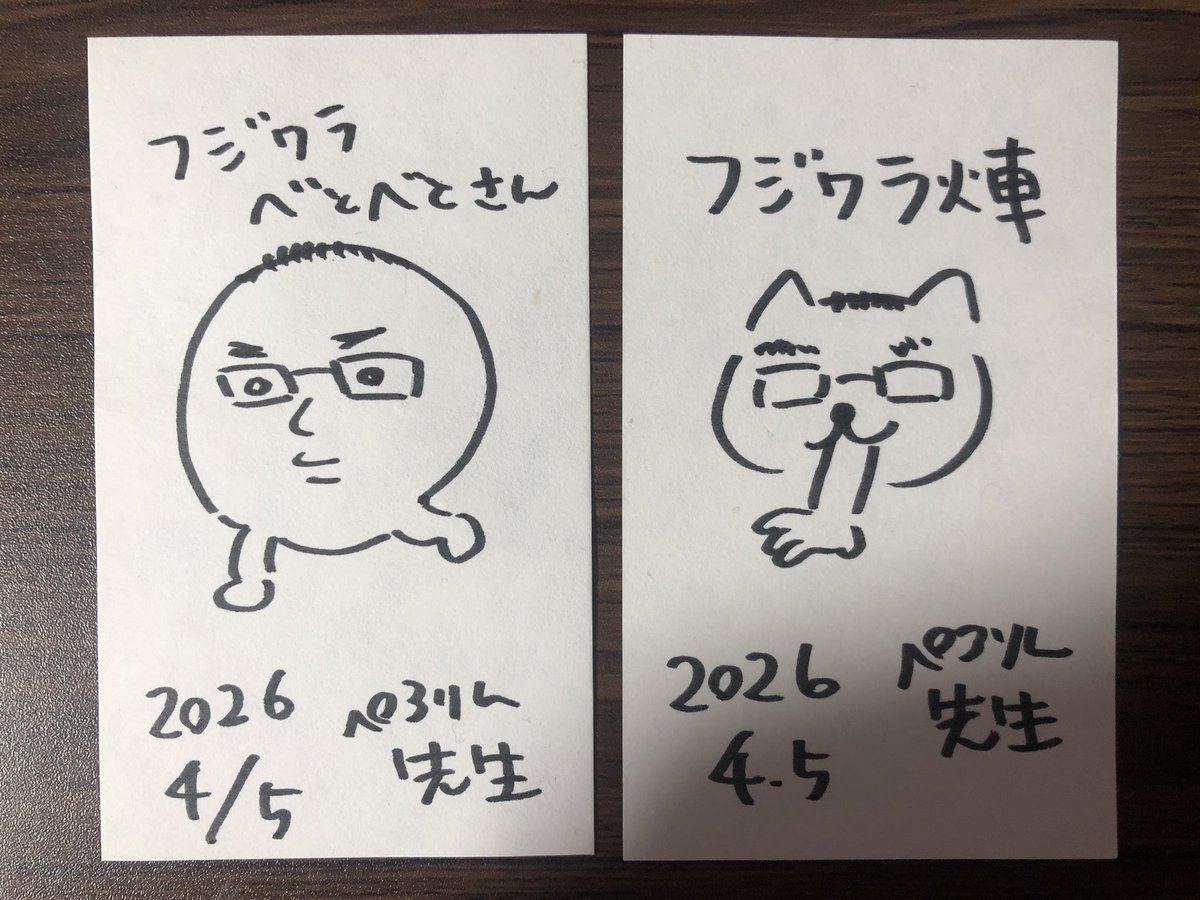 フジワラ
べとべとさん
2026
4/5
ぺろりん
先生
フジワラ火車
2026
4.5
ペロリん
先生